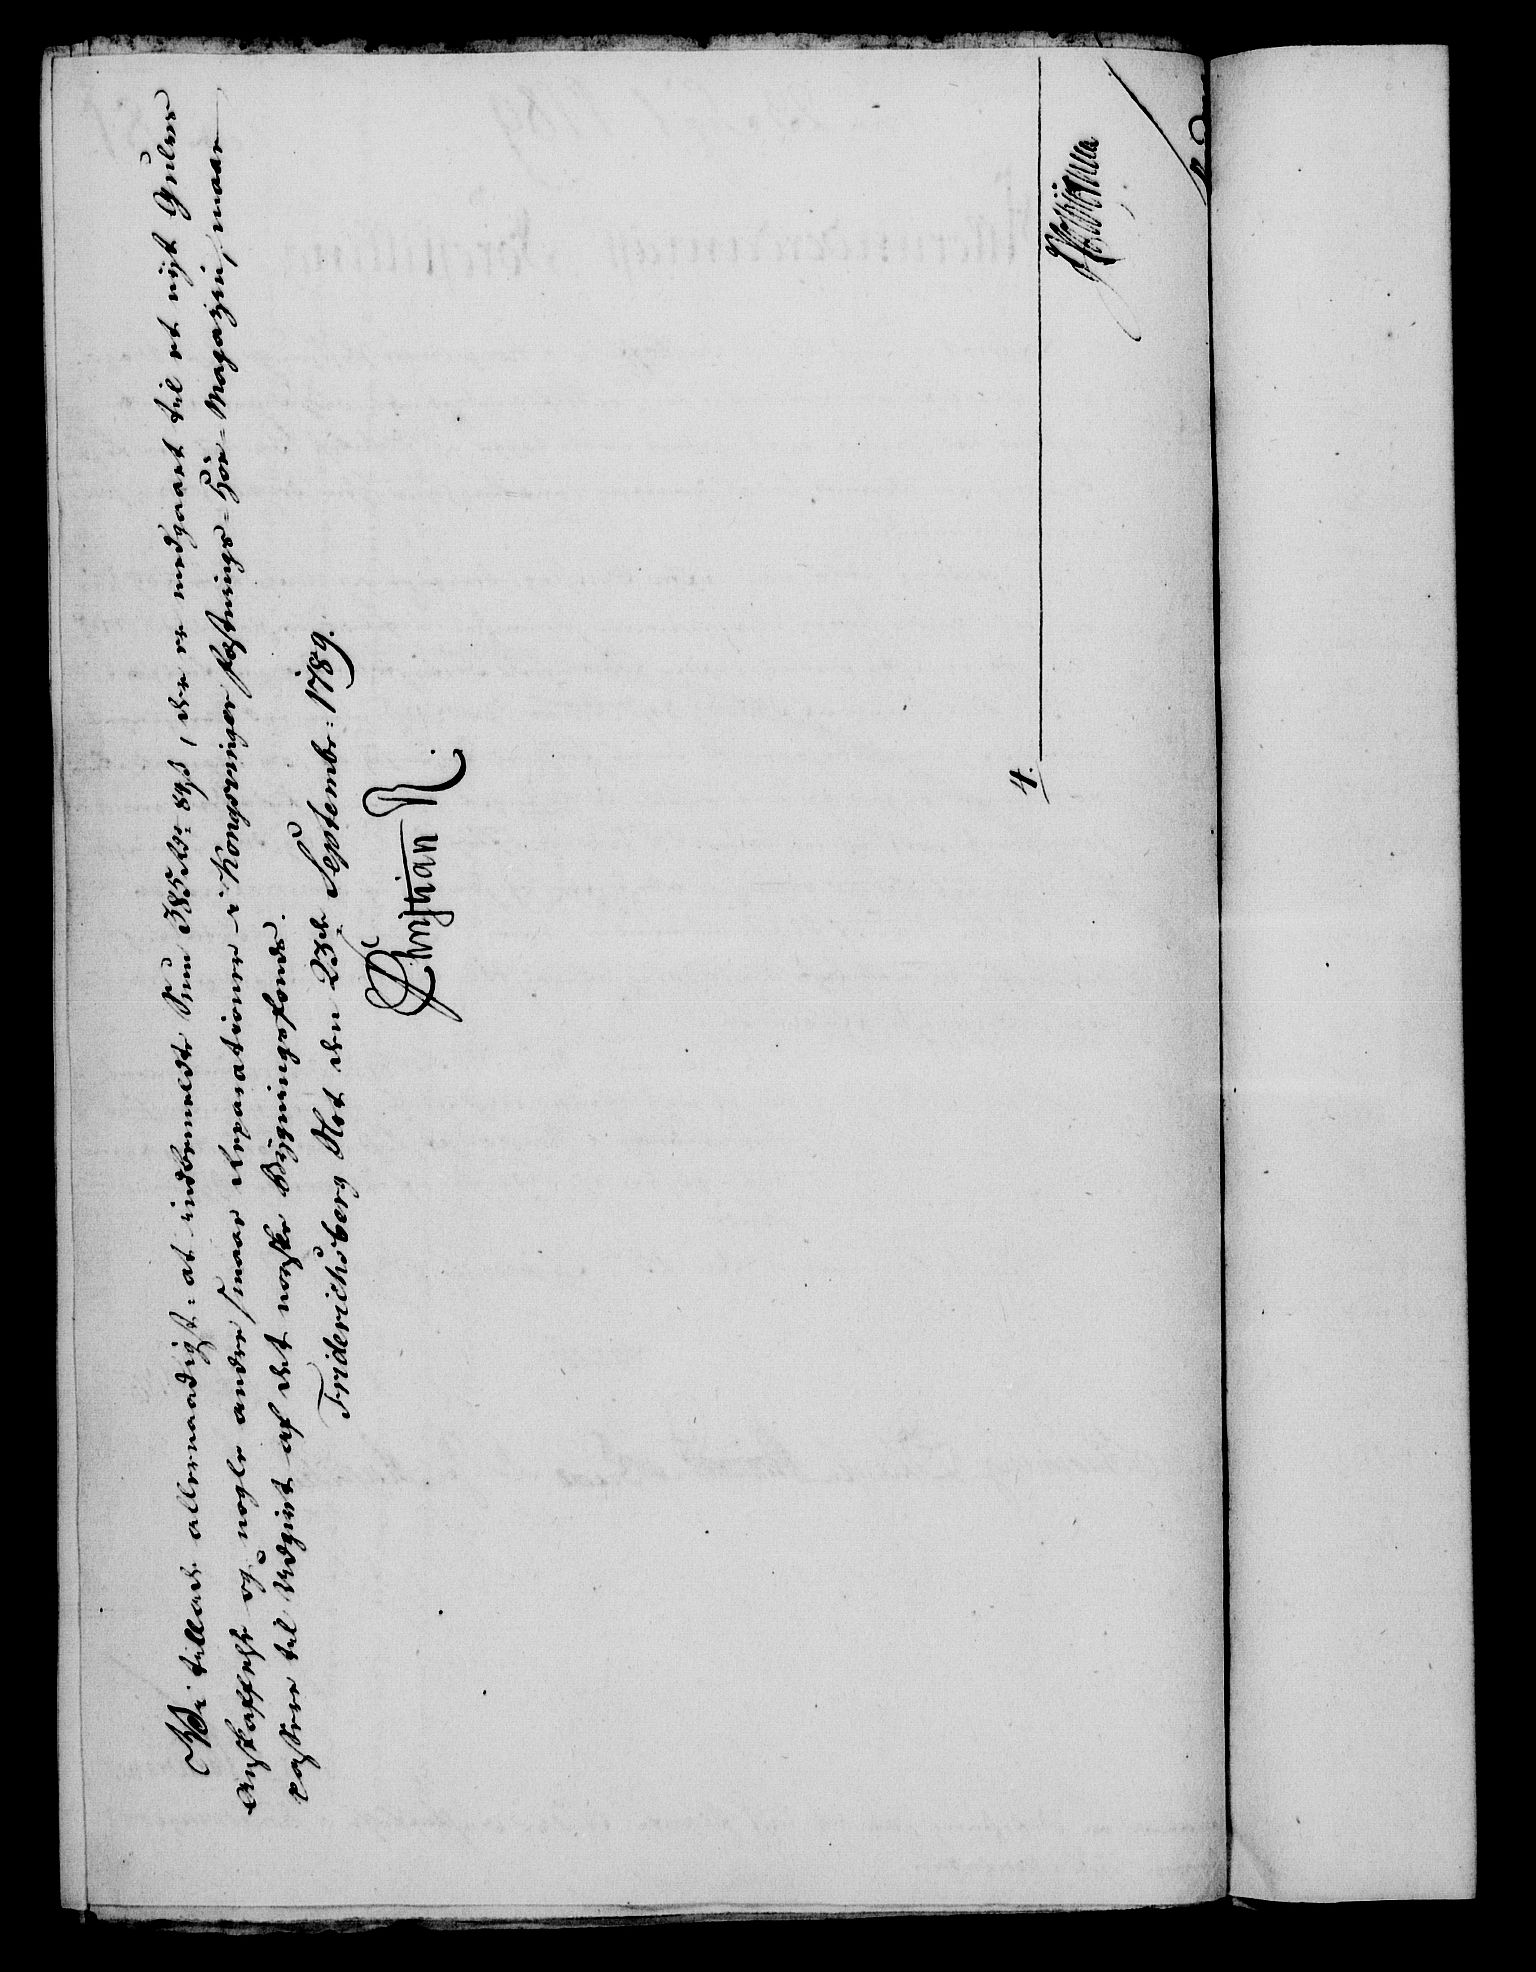 Vi tillade allernaadigst: at indbemeldte Sum 385 Rd: 84 ß, der er medgaaet til et nyt Gulvs
Anskaffelse og nogle andre smaae Reparationer i Kongsvinger Fæstnings-Höe-Magazin, maae
passere til Udgivt af det norske Bygningsfonds.
Friderichsberg Slot den 23de Septembr: 1789.
Christian R.
4.